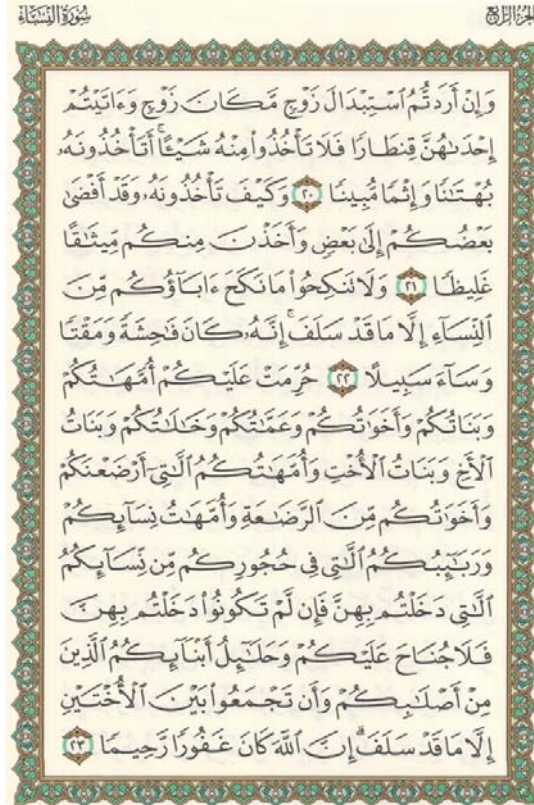 الجزء الرابع
سورة النساء
وَإِنْ أَرَدتُّمُ ٱسْتِبْدَالَ زَوْجٍ مَّكَانَ زَوْجٍ وَءَاتَيْتُمْ
إِحْدَىٰهُنَّ قِنطَارًا فَلَا تَأْخُذُوا۟ مِنْهُ شَيْـًٔا ۚ أَتَأْخُذُونَهُۥ
بُهْتَـٰنًا وَإِثْمًا مُّبِينًا ٢٠ وَكَيْفَ تَأْخُذُونَهُۥ وَقَدْ أَفْضَىٰ
بَعْضُكُمْ إِلَىٰ بَعْضٍ وَأَخَذْنَ مِنكُم مِّيثَـٰقًا
غَلِيظًا ٢١ وَلَا تَنكِحُوا۟ مَا نَكَحَ ءَابَآؤُكُم مِّنَ
ٱلنِّسَآءِ إِلَّا مَا قَدْ سَلَفَ ۚ إِنَّهُۥ كَانَ فَـٰحِشَةً وَمَقْتًا
وَسَآءَ سَبِيلًا ٢٢ حُرِّمَتْ عَلَيْكُمْ أُمَّهَـٰتُكُمْ
وَبَنَاتُكُمْ وَأَخَوَٰتُكُمْ وَعَمَّـٰتُكُمْ وَخَـٰلَـٰتُكُمْ وَبَنَاتُ
ٱلْأَخِ وَبَنَاتُ ٱلْأُخْتِ وَأُمَّهَـٰتُكُمُ ٱلَّـٰتِىٓ أَرْضَعْنَكُمْ
وَأَخَوَٰتُكُم مِّنَ ٱلرَّضَـٰعَةِ وَأُمَّهَـٰتُ نِسَآئِكُمْ
وَرَبَـٰٓئِبُكُمُ ٱلَّـٰتِى فِى حُجُورِكُم مِّن نِّسَآئِكُمُ
ٱلَّـٰتِى دَخَلْتُم بِهِنَّ فَإِن لَّمْ تَكُونُوا۟ دَخَلْتُم بِهِنَّ
فَلَا جُنَاحَ عَلَيْكُمْ وَحَلَـٰٓئِلُ أَبْنَآئِكُمُ ٱلَّذِينَ
مِنْ أَصْلَـٰبِكُمْ وَأَن تَجْمَعُوا۟ بَيْنَ ٱلْأُخْتَيْنِ
إِلَّا مَا قَدْ سَلَفَ ۗ إِنَّ ٱللَّهَ كَانَ غَفُورًا رَّحِيمًا ٢٣